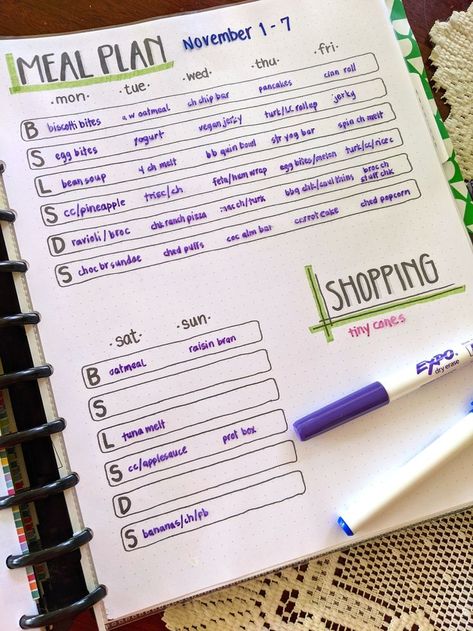 MEAL PLAN November 1 - 7
·mon· ·tue· ·wed· ·thu· ·fri·
B biscotti bites a w oatmeal ch chip bar pancakes cinn roll
S egg bites yogurt vegan jerky turk/LC rollup jerky
L bean soup 4 ch melt bb quin bowl str yog bar spin ch melt
S cc/pineapple trisc/ch feta/hum wrap egg bites/melon turk/cc/rice c
D ravioli/broc chk ranch pizza mac ch/turk bbq chk/caul thins broc ch stuff chk
S choc br sundae ched puffs coc alm bar carrot cake ched popcorn
SHOPPING
tiny cones
·sat· ·sun·
B oatmeal raisin bran
S
L tuna melt
S cc/applesauce prot box
D
S bananas/ch/pb
EXPO
dry erase